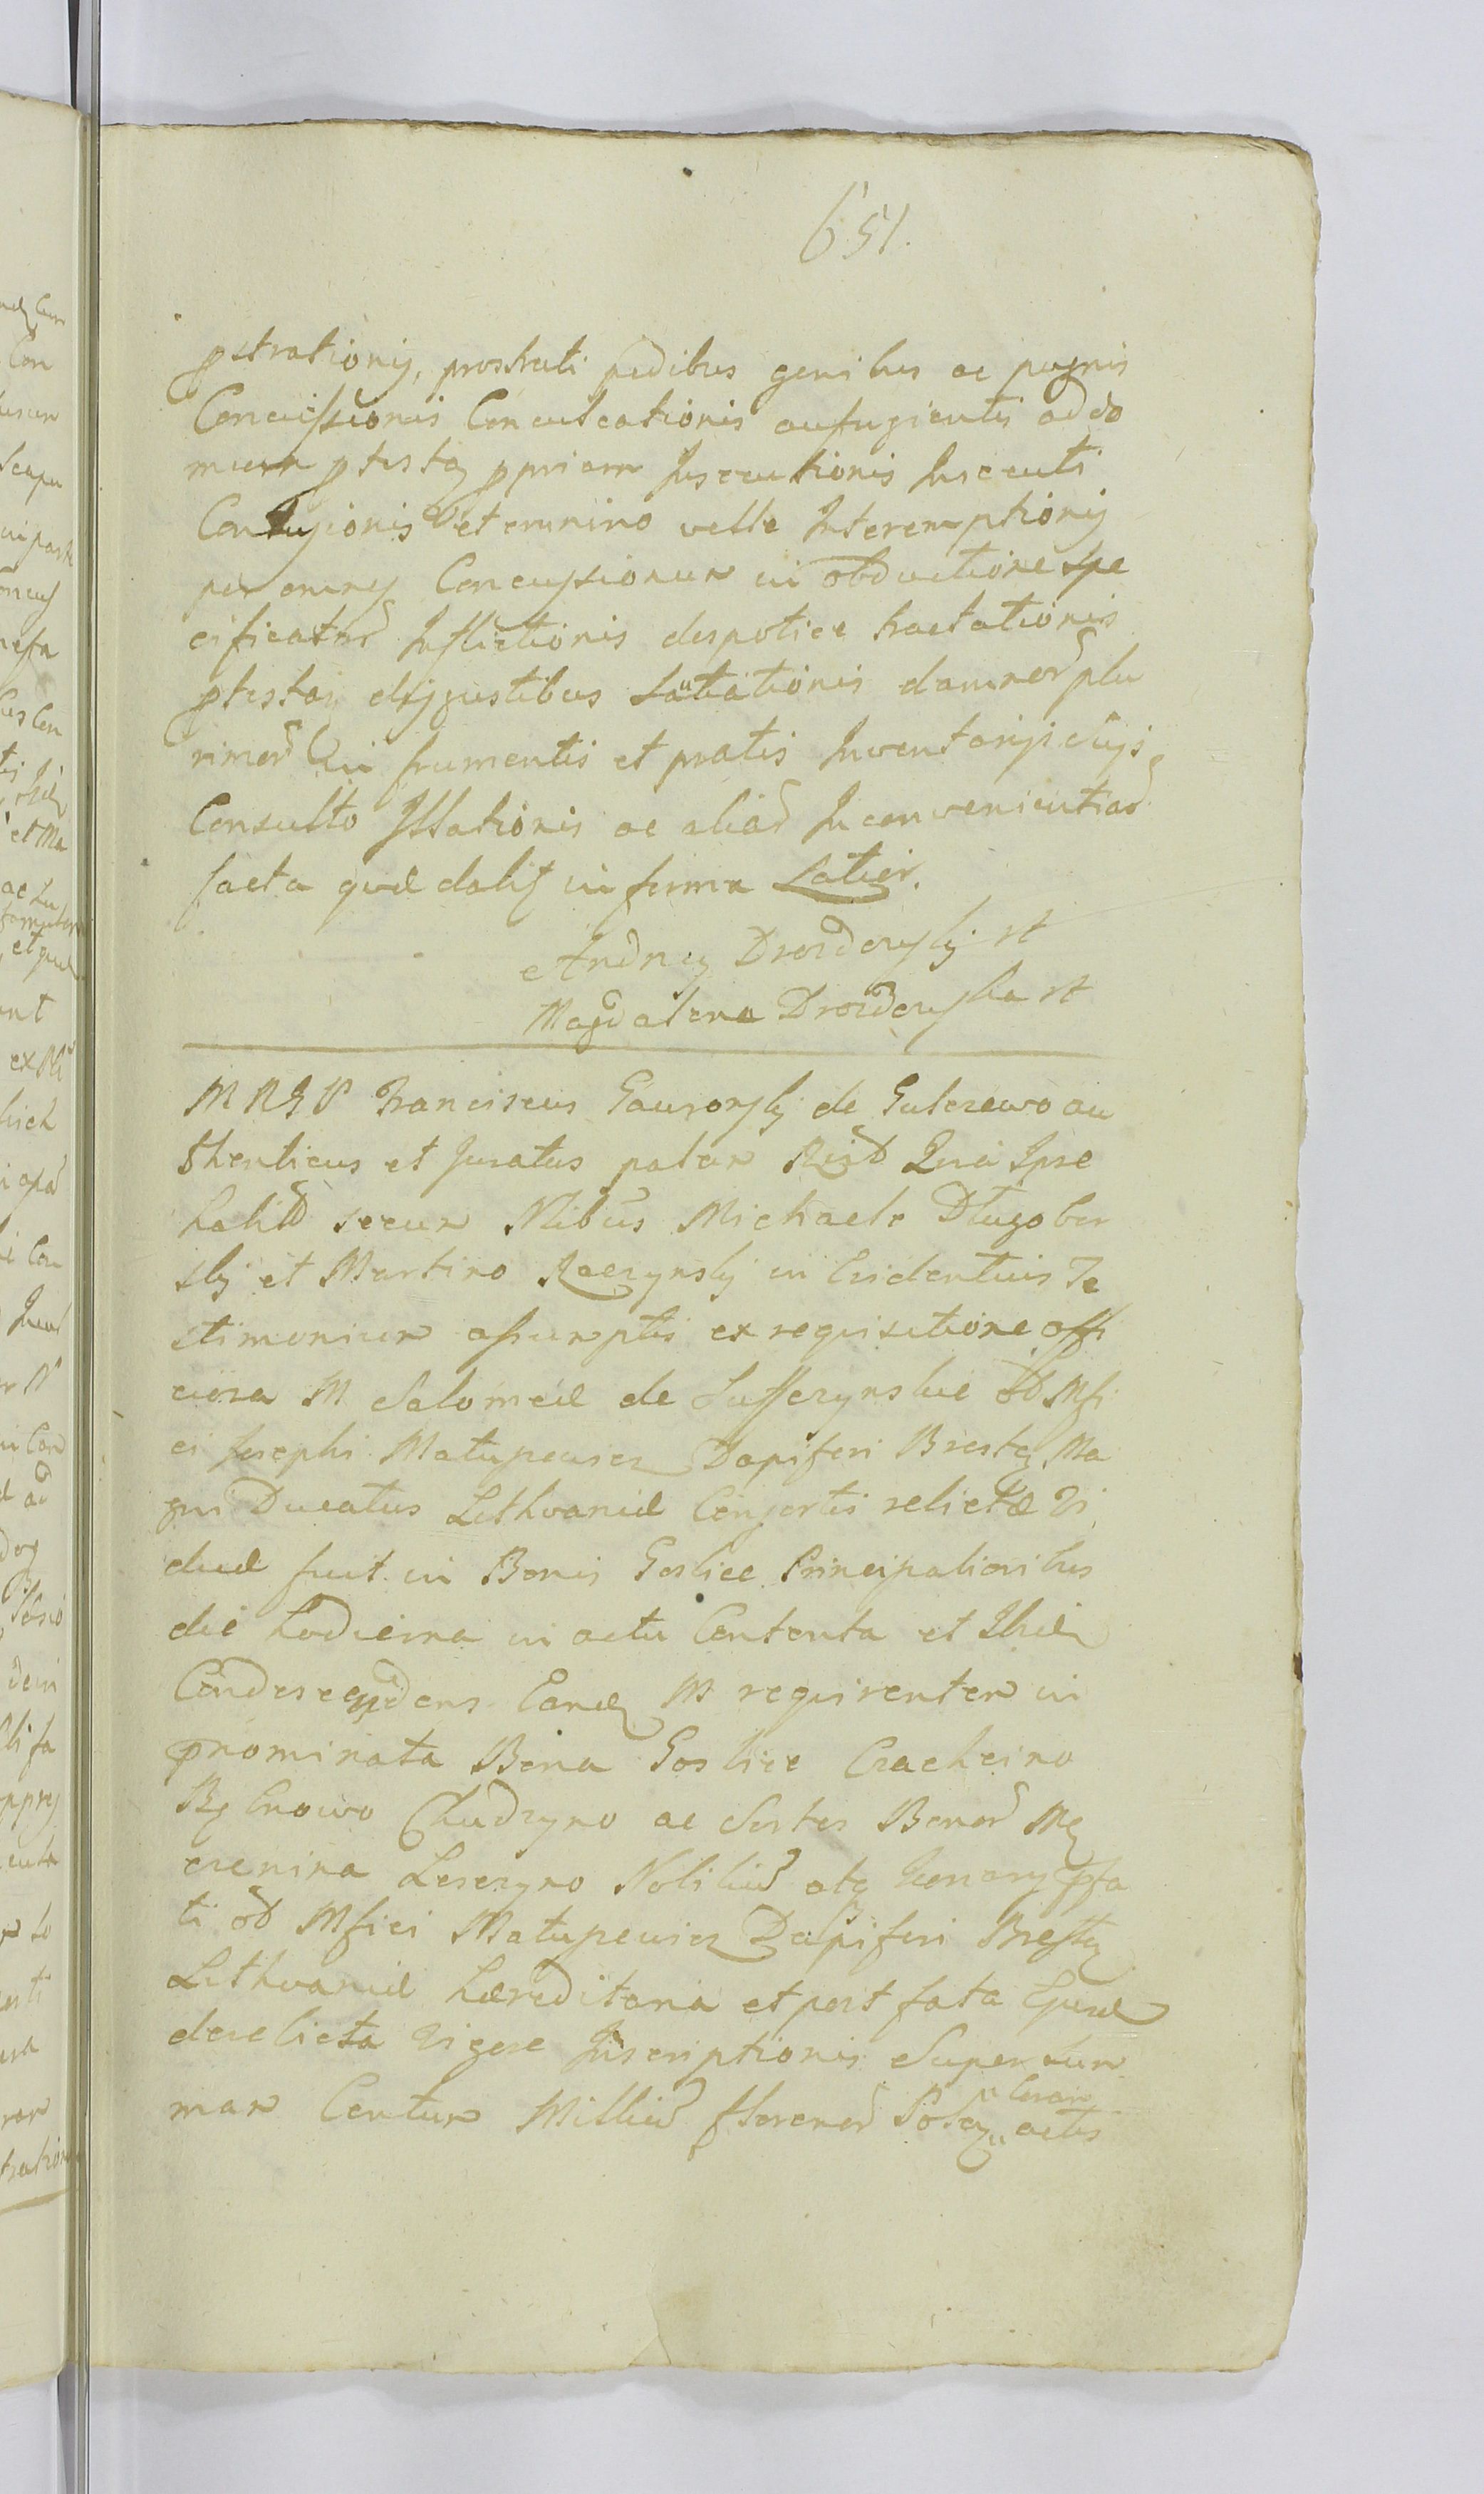 651.
pstrationis, prostrati pedibus genibus ac pugnis
Concussionis Conculcationis aufugientis ad do
mum ptestaĝ ppriam Insecutionis Insecuti
Contusionis et omnino velle Interemptionis
per omnes Concussionum in obductione spe
cificatar Inflictionis despotice tractationis
ptestaĝ disgustibus Satiationis damnor plu
rimor in frumentis et pratis Inventarijs ejus
Consulto Illationis ac aliar Inconvenientiar
facta quæ dalis in forma Latior.
Andrzey Drozdowski st
Magdalena Drozdowska st
M R G P Franciscus Gaworski de Gulczewo au
thenticus et Juratus palam Rīt Quia Ipse
habitis secum Nlibus Michaele Długobor
ski et Martino Raczynski in Evidentius Te
stimonium assumptis ex requisitione offi
ciosa M Salomeæ de Sufferynskie olt Mfi
ci Josephi Matuszewicz Dapiferi Bresteñ Ma
gni Ducatus Lithvaniæ Consortis relictæ Vi
duæ fuit in Bonis Goslice Principalioribus
die hodierna in actu Contenta et Ibidem
Condescendens Eandem M requirentem in
pnominata Bona Goslice Cracheino
Chudzyno ac Sortes Bonor
Lesezyno Nobiliū atq pfa
ti olt Mfici Matuszewicz Dapiferi Bresteñ
Lithvaniæ hæreditaria et post fata Ejusdem
derelicta vigore Inscriptionis Super Sum
mam Centum Milliū florenor Polon coram
actis